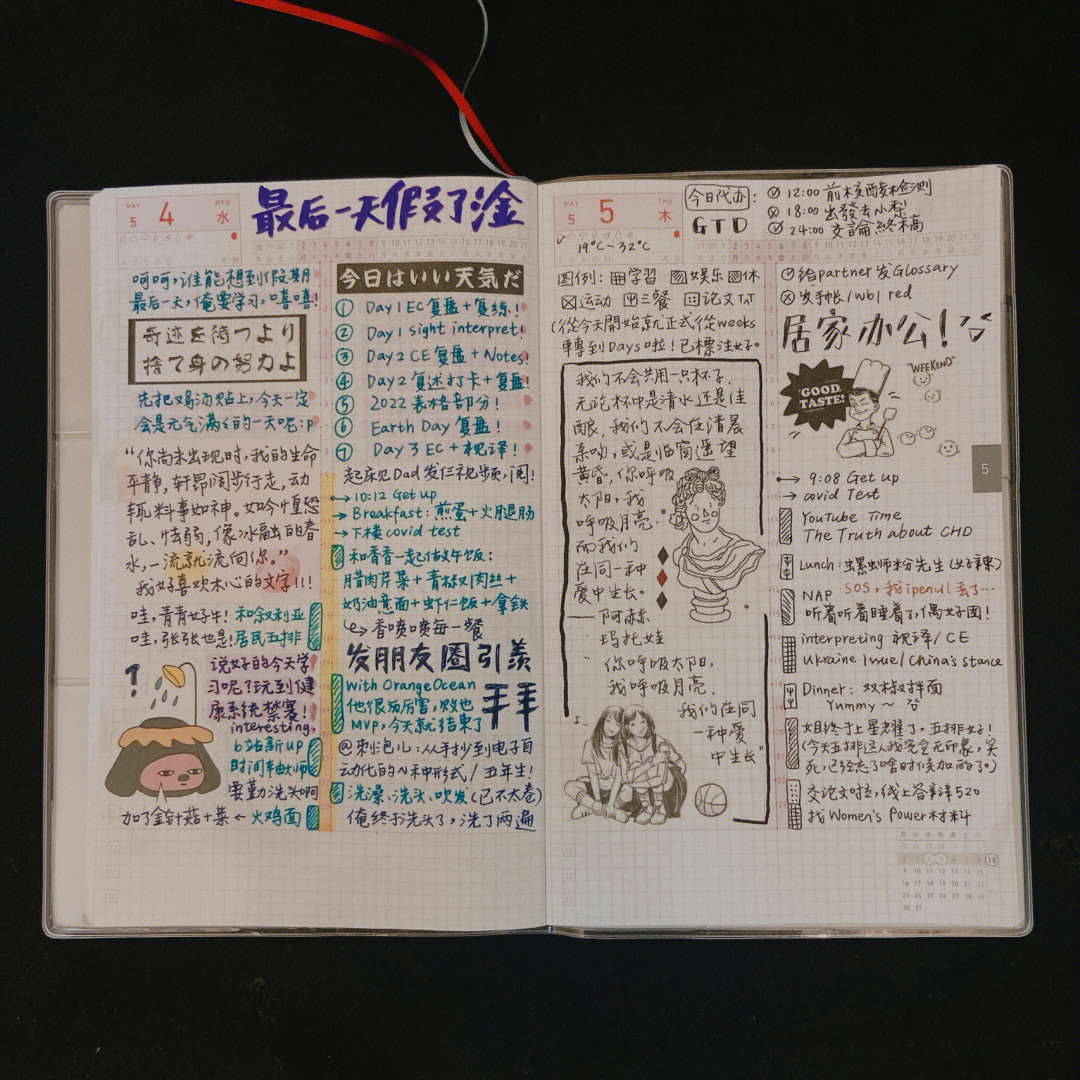 MAY
5
4
WED
水
最后一天假了淦
呵呵,谁能想到假期
最后一天,俺要学习,嘻嘻!
奇迹を待つより
捨て身の努力よ
先把鸡汤贴上,今天一定
会是元气满满的一天呢:p
“你尚未出现时,我的生命
平静,轩昂阔步行走,动
辄料事如神。如今惶恐
乱、怯弱,像冰融的春
水,一流就流向你。”
我好喜欢木心的文字!!!
哇,青青好牛!和叙利亚
哇,张张也是!居民五排
说好的今天学
习呢?玩到健
康系统禁赛!
interesting.
b站新up
时间轴大师
要勤洗头啊
加了金针菇+菜 ← 火鸡面
今日はいい天気だ
① Day 1 EC 复盘+复练!
② Day 1 sight interpret!
③ Day 2 CE 复盘 + Notes!
④ Day 2 复述打卡+复盘!
⑤ 2022 表格部分!
⑥ Earth Day 复盘!
⑦ Day 3 EC + 视译!
起床见Dad发仨视频,阅!
→ 10:12 Get up
→ Breakfast: 煎蛋+火腿肠
→ 下楼 covid test
和香香一起做午饭:
腊肉芹菜+青椒肉丝+
奶油意面+虾仁饭+拿铁
↳ 香喷喷每一餐
发朋友圈引羡
with OrangeOcean
他很加厉害,败也
MVP,今天就结束了
@刺泡儿:从手抄到电子自
动化的N种形式/五年生!
洗澡、洗头、吹发(已不太卷)
俺终于洗头了,洗了两遍
MAY
5
5
THU
木
19°C ~ 32°C
今日代办:
GTD
12:00 前核酸检测
18:00 出發去小梨
24:00 交論終稿
图例: 学習 娱乐 休
运动 三餐 论文T.T
(從今天開始就正式從weeks
轉到Days啦!已標注好。
我们不会共用一只杯子,
无论杯中是清水还是佳
酿,我们不会在清晨
亲吻,或是临窗遥望
黄昏,你呼吸
太阳,我
呼吸月亮.
而我们
在同一种
爱中生长。
——阿赫
玛托娃
“你呼吸太阳,
我呼吸月亮,
我们在同
一种爱
中生长”
给partner 发Glossary
发手帐/wb/red
居家办公!
"GOOD
TASTE!
"WEEKEND"
→ 9:08 Get up
→ covid Test
YouTube Time
The Truth about CHD
Lunch: 螺蛳粉先生(好辣)
SOS, 我ipencil丢了…
NAP
听着听着睡着了,偶好困!
interpreting 視譯/CE
Ukraine Issue/China's stance
Dinner: 双椒拌面
Yummy ~
姐终于上星耀了,五排好了!
(今天五排这人我完全无印象,笑
死,已经忘了啥时候加的了。)
交论文时立,线上答辩520
找Women's Power材料
5